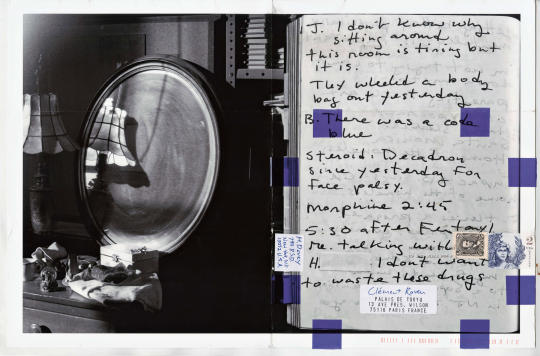 J. I don't know why
sitting around
this room is tiring but
it is.
They wheeled a body
bag out yesterday
B. There was a code
blue
Steroid: Decadron
since yesterday for
face palsy.
morphine 2:45
5:30 after Fentanyl
Me. talking with
H. I don't want
to waste these drugs
M. Davey
10032 U.S.A
Clément
PALAIS DE TOKYO
13 AVE PRES. WILSON
75116 PARIS FRANCE